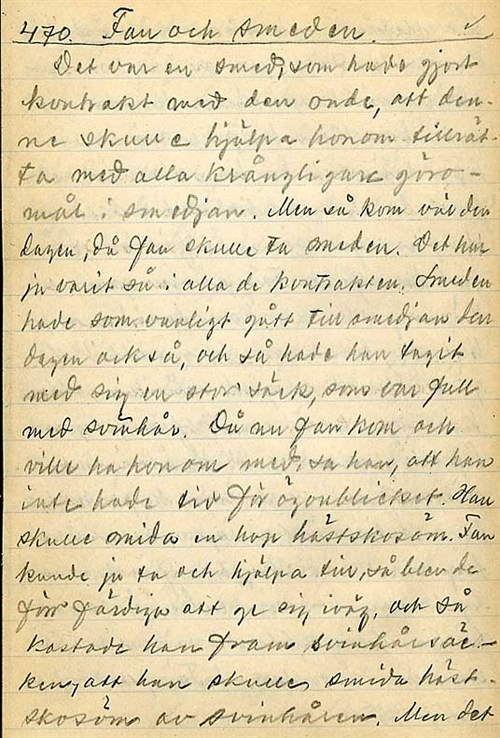 470. Fan och smeden.
Det var en smed, som hade gjort
kontrakt med den onde, att den-
ne skulle hjälpa honom tillrät-
ta med alla krångligare göro-
mål i smedjan. Men så kom väl den
dagen, då fan skulle ta smeden. Det har
ju varit så i alla de kontrakten. Smeden
hade som vanligt gått till smedjan den
dagen också, och så hade han tagit
med sig en stor säck, som var full
med svinhår. Då nu fan kom och
ville ha honom med, sa han, att han
inte hade tid för ögonblicket. Han
skulle smida en hop hästskosöm. Fan
kunde ju ta och hjälpa till, så blev de
förr färdiga att ge sig iväg, och så
kastade han fram svinhårsäc-
ken, att han skulle smida häst-
skosöm av svinhåren. Men det